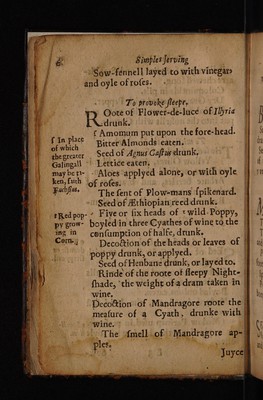 6 Simples serving
Sow-fennell layed to with vinegar
and oyle of roses.
To provoke sleepe.
ROote of Flower-de-luce of Illyria
drunk.
f Amomum put upon the fore-head.
Bitter Almonds eaten.
Seed of Agnus Castus drunk.
Lettice eaten.
Aloes applyed alone, or with oyle
of roses.
The smt of Plow-mans spikenard.
Seed of Æthiopian reed drunk.
Five or six heads of wild Poppy,
boyled in three Cyathes of wine to the
consumption of halfe, drunk.
Decoction of the heads or leaves of
poppy drunk, or applyed.
Seed of Henbane drunk, or layed to.
Rinde of the roote of sleepy Night-
shade, the weight of a dram taken in
wine.
Decoction of Mandragore roote the
measure of a Cyath, drunke with
wine.
The smell of Mandragore ap-
ples.
Juyce
f In place
of which
the greater
Galingall
may be ta-
ken, saith
Fuchsius.
Red pop-
py grow-
ing in
Corn.